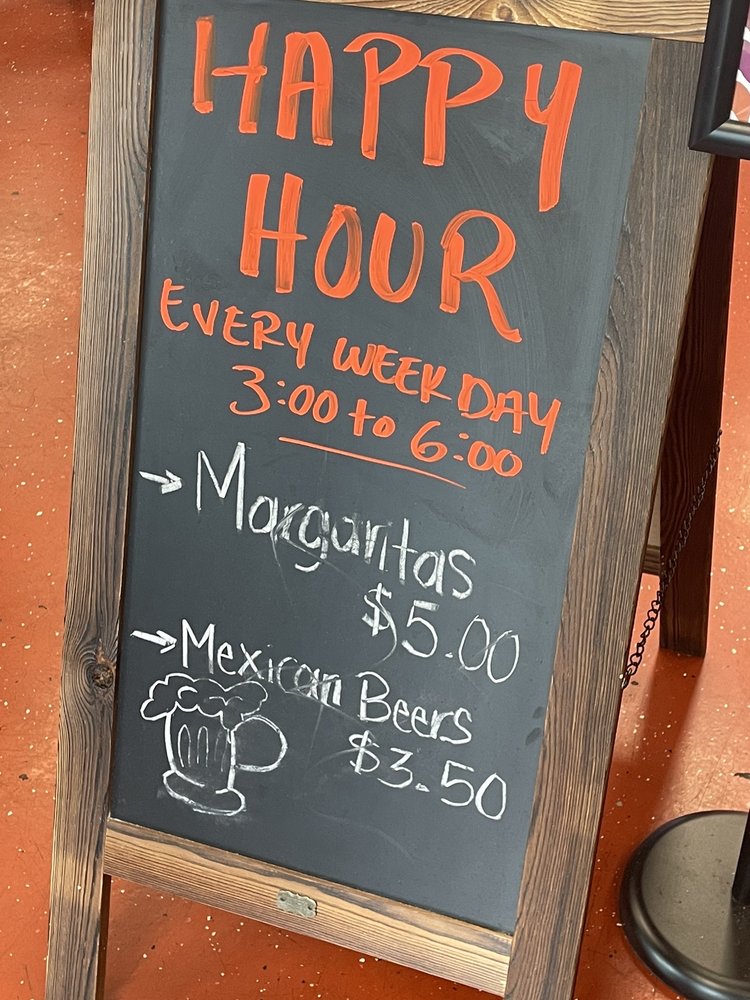 HAPPY
HOUR
EVERY WEEKDAY
3:00 to 6:00
→ Margaritas
$5.00
→ Mexican Beers
$3.50